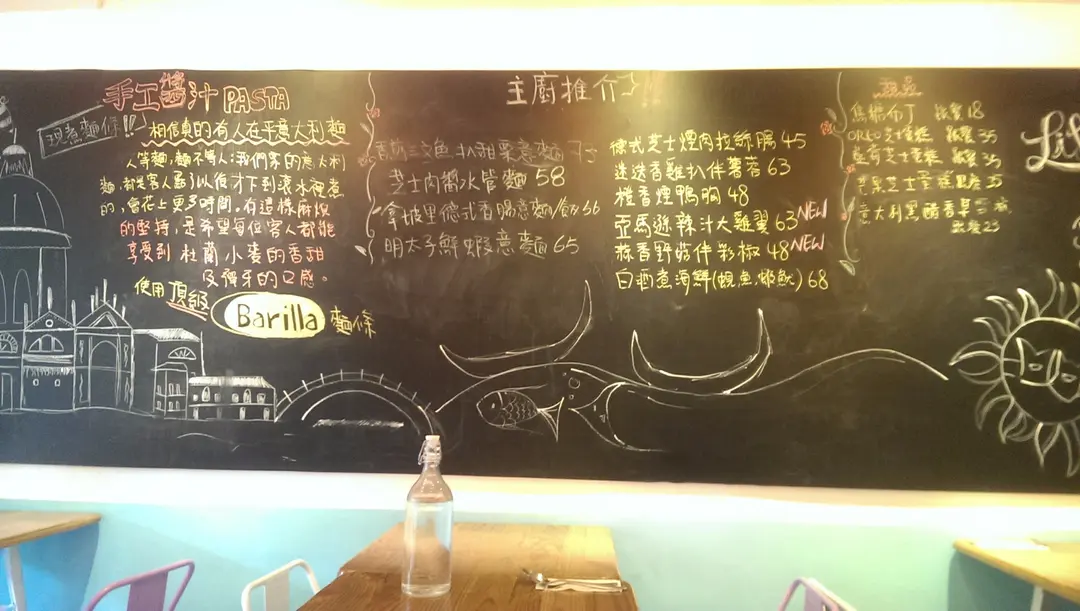 手工醬汁 PASTA
現煮麵條!!
相信真的有人在乎意大利麵
人等麵,麵不等人;我們家的意大利
麵,都是客人點了以後才下到滾水裡煮
的,會花上更多時間,有這樣麻煩
的堅持,是希望每位客人都能
享受到 杜蘭小麥的香甜
及彈牙的口感。
使用頂級
Barilla 麵條
主廚推介
三文魚扒甜栗意麵
芝士肉醬水管麵 58
拿坡里德式香腸意麵/飯 66
明太子鮮蝦意麵 65
德式芝士煙肉拉絲腸 45
迷迭香雞扒伴薯蓉 63
橙香煙鴨胸 48
亞馬遜辣汁大雞翼 63 NEW
蒜香野菇伴彩椒 48 NEW
白酒煮海鮮(蜆,魚,蝦,魷) 68
焦糖布丁 跟餐 18
OREO芝士蛋糕 跟餐 35
芝士蛋糕 跟餐 35
芝士蛋糕 跟餐 35
意大利黑醋香草雪糕
跟餐 25